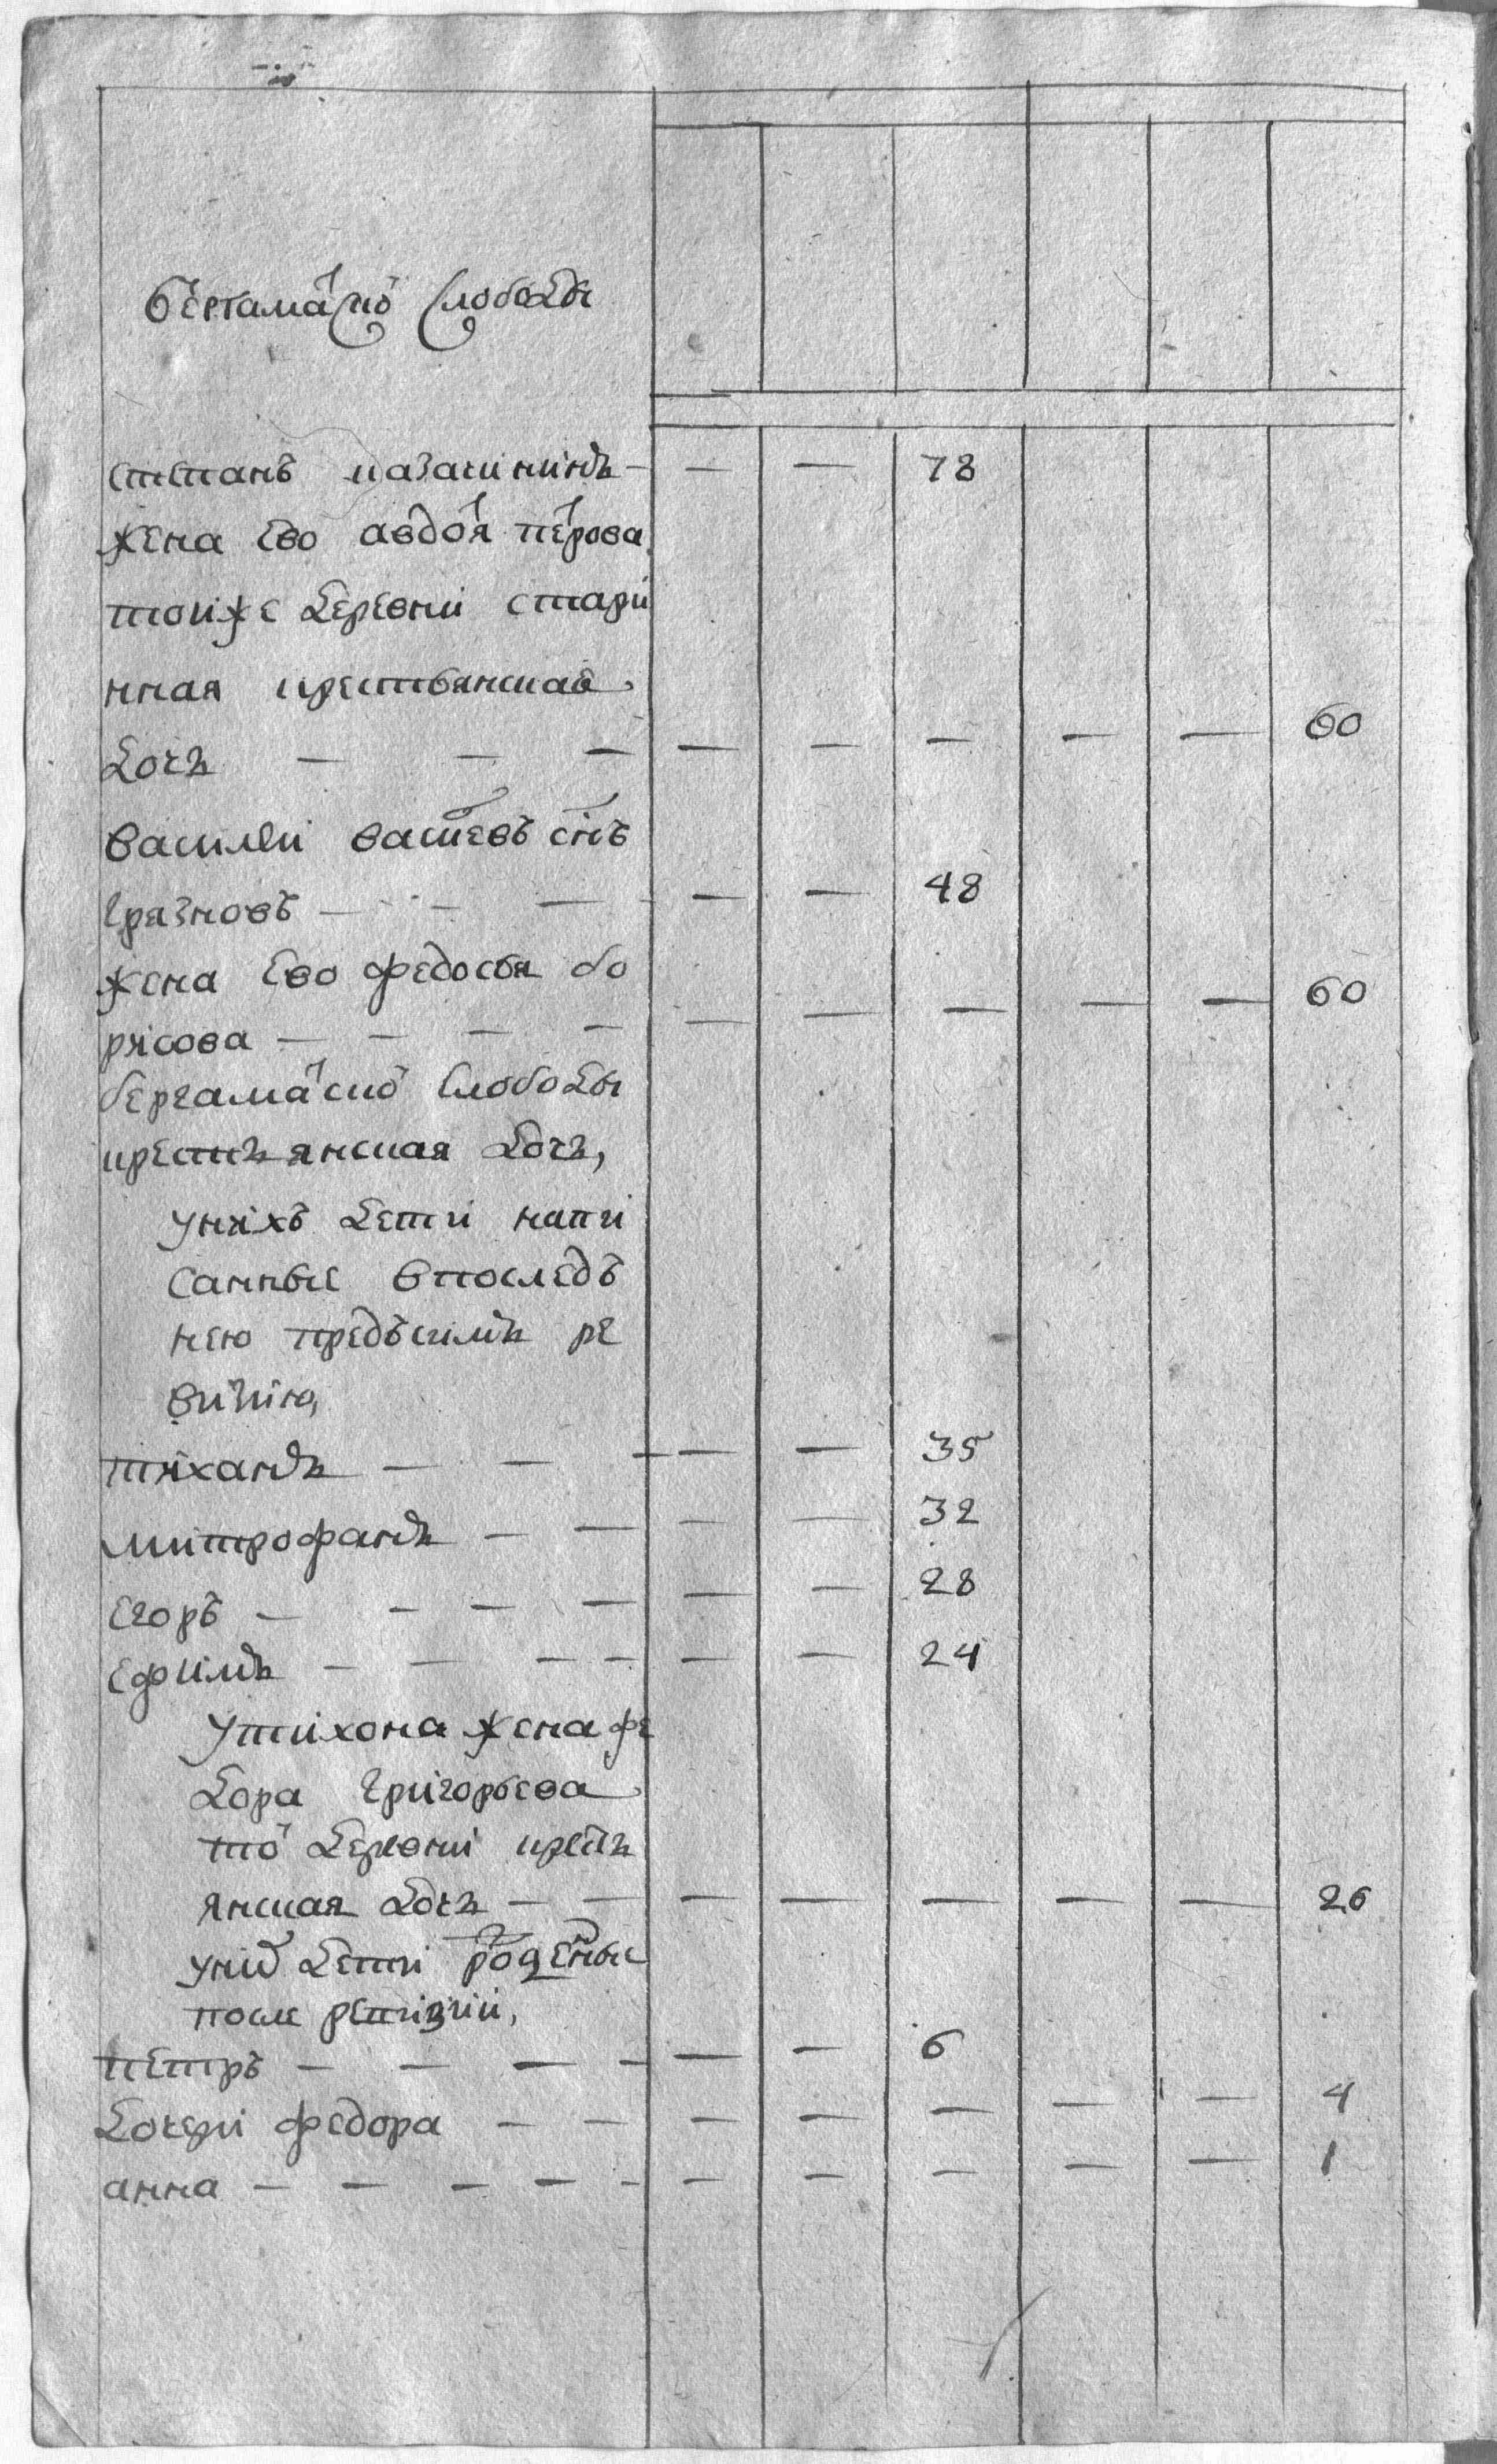 бергамацкой слободы
степанъ казачининъ — — — 78
жена ево авдотя петрова
тойже деревни стари
нная крестьянская
дочь — — — — — — — — 60
василей василевъ снъ
грязновъ — — — — — 48
жена ево федосья бо
рисова — — — — — — — — — 60
бергамацкой слободы
крестьянская дочь,
унихъ дети напи
санные впоследъ
нею предъсимъ ре
визию,
тиханъ — — — — — 35
митрофанъ — — — — 32
егоръ — — — — — — 28
ефимъ — — — — — — 24
утихона жена фе
дора григорьева
той деревни кресть
янская дочь — — — — — — — 26
унихъ дети рожденные
после ревизии,
петръ — — — — — — 6
дочери федора — — — — — — — 4
анна — — — — — — — — — — 1